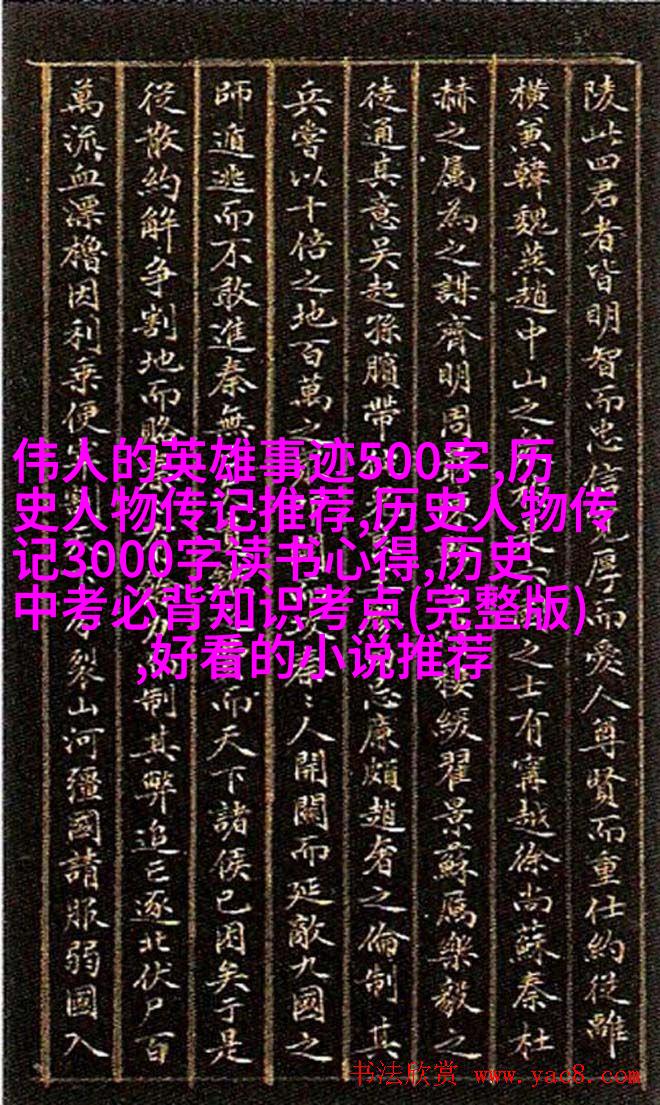 陵此四君者皆明智而忠信厚而愛人尊賢而重仕約從離
橫兼韓魏燕趙中山之之士有寗越徐尚蘇秦杜
赫之屬為之謀齊明周樓緩翟景蘇厲樂毅之
徒通其意吳起孫臏帶忌廉頗趙奢之倫制其
兵嘗以十倍之地百萬之〻人開關而延敵九國之
師遁逃而不敢進秦無而天下諸侯已困矣于是
從散約解爭割地而賂制其弊追亡逐北伏尸百
萬流血漂櫓因利乘便裂山河彊國請服弱國入
伟人的英雄事迹500字,历
史人物传记推荐,历史人物传
记3000字读书心得,历史
中考必背知识考点(完整版)
,好看的小说推荐
书法欣赏 www.yac8.com